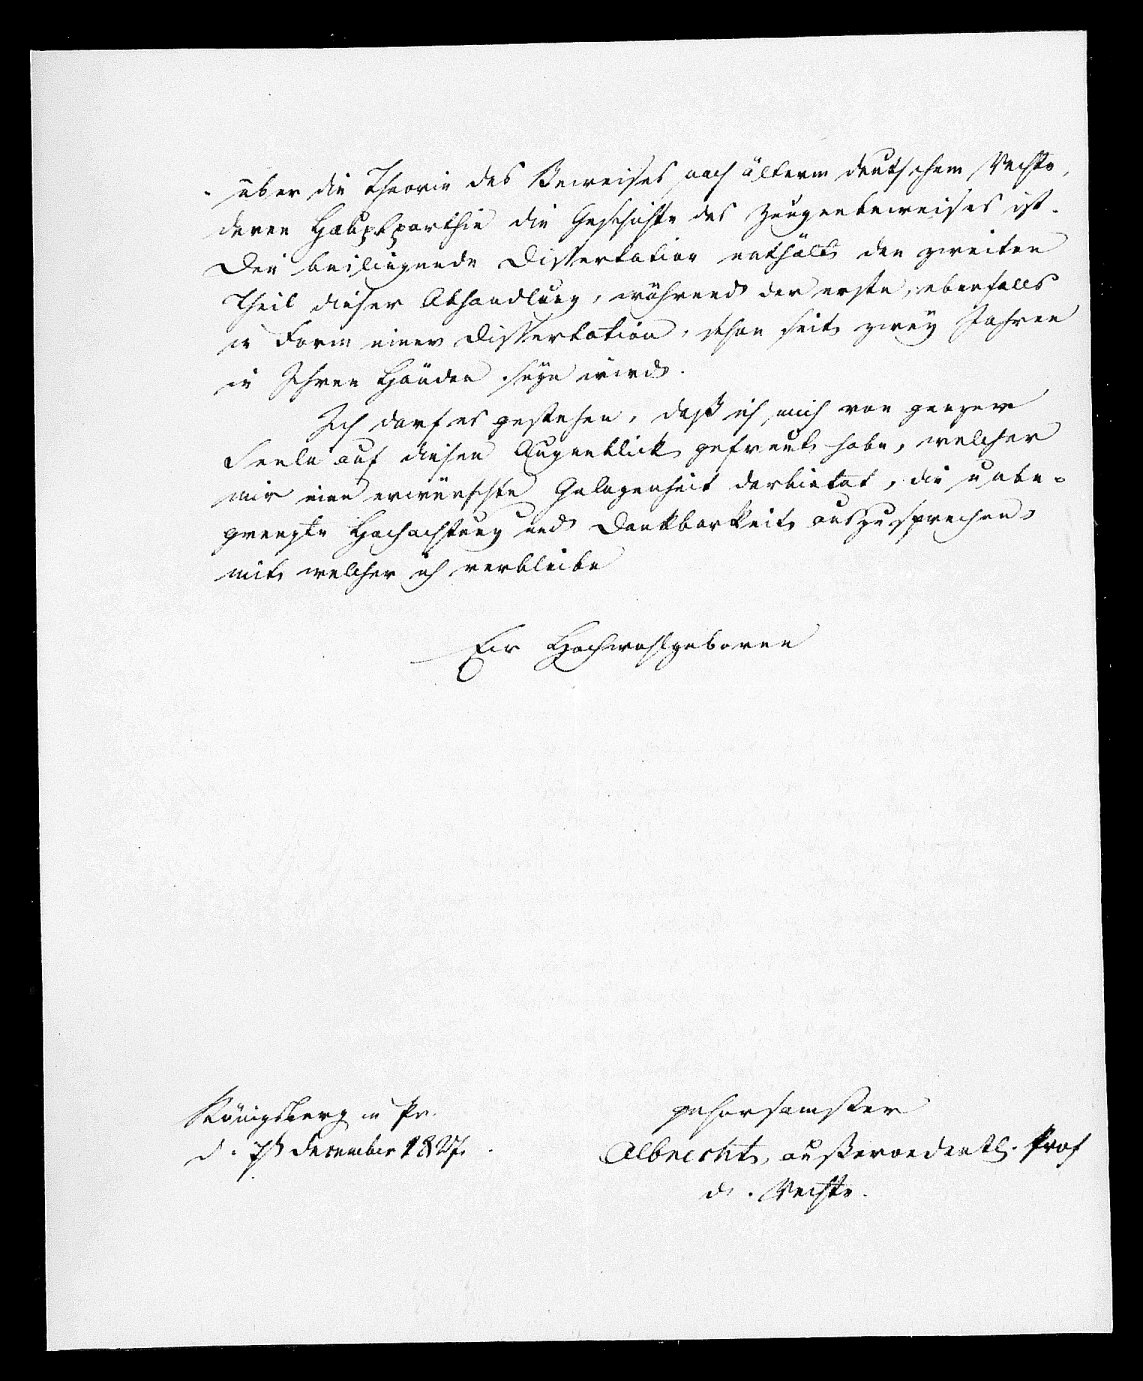 über die Theorie des Beweises nach älterm deutschem Rechte,
deren Hauptparthie die Geschichte des Zeugenbeweises ist.
Die beiliegende Dissertation enthält den zweiten
Theil dieser Abhandlung, während der erste, ebenfalls
in Form einer Dissertation, schon seit zwey Jahren
in Ihren Händen seyn wird.
Ich darf es gestehen, daß ich mich von ganzer
Seele auf diesen Augenblick gefreut habe, welcher
mir eine erwünschte Gelegenheit darbietet, die unbe-
grenzte Hochachtung und Dankbarkeit auszusprechen
mit welcher ich verbleibe
Ew Hochwohlgeboren
Königsberg in Pr.
d. 7t December 1827.
gehorsamster
Albrecht, außerordentl. Prof
d. Rechte.